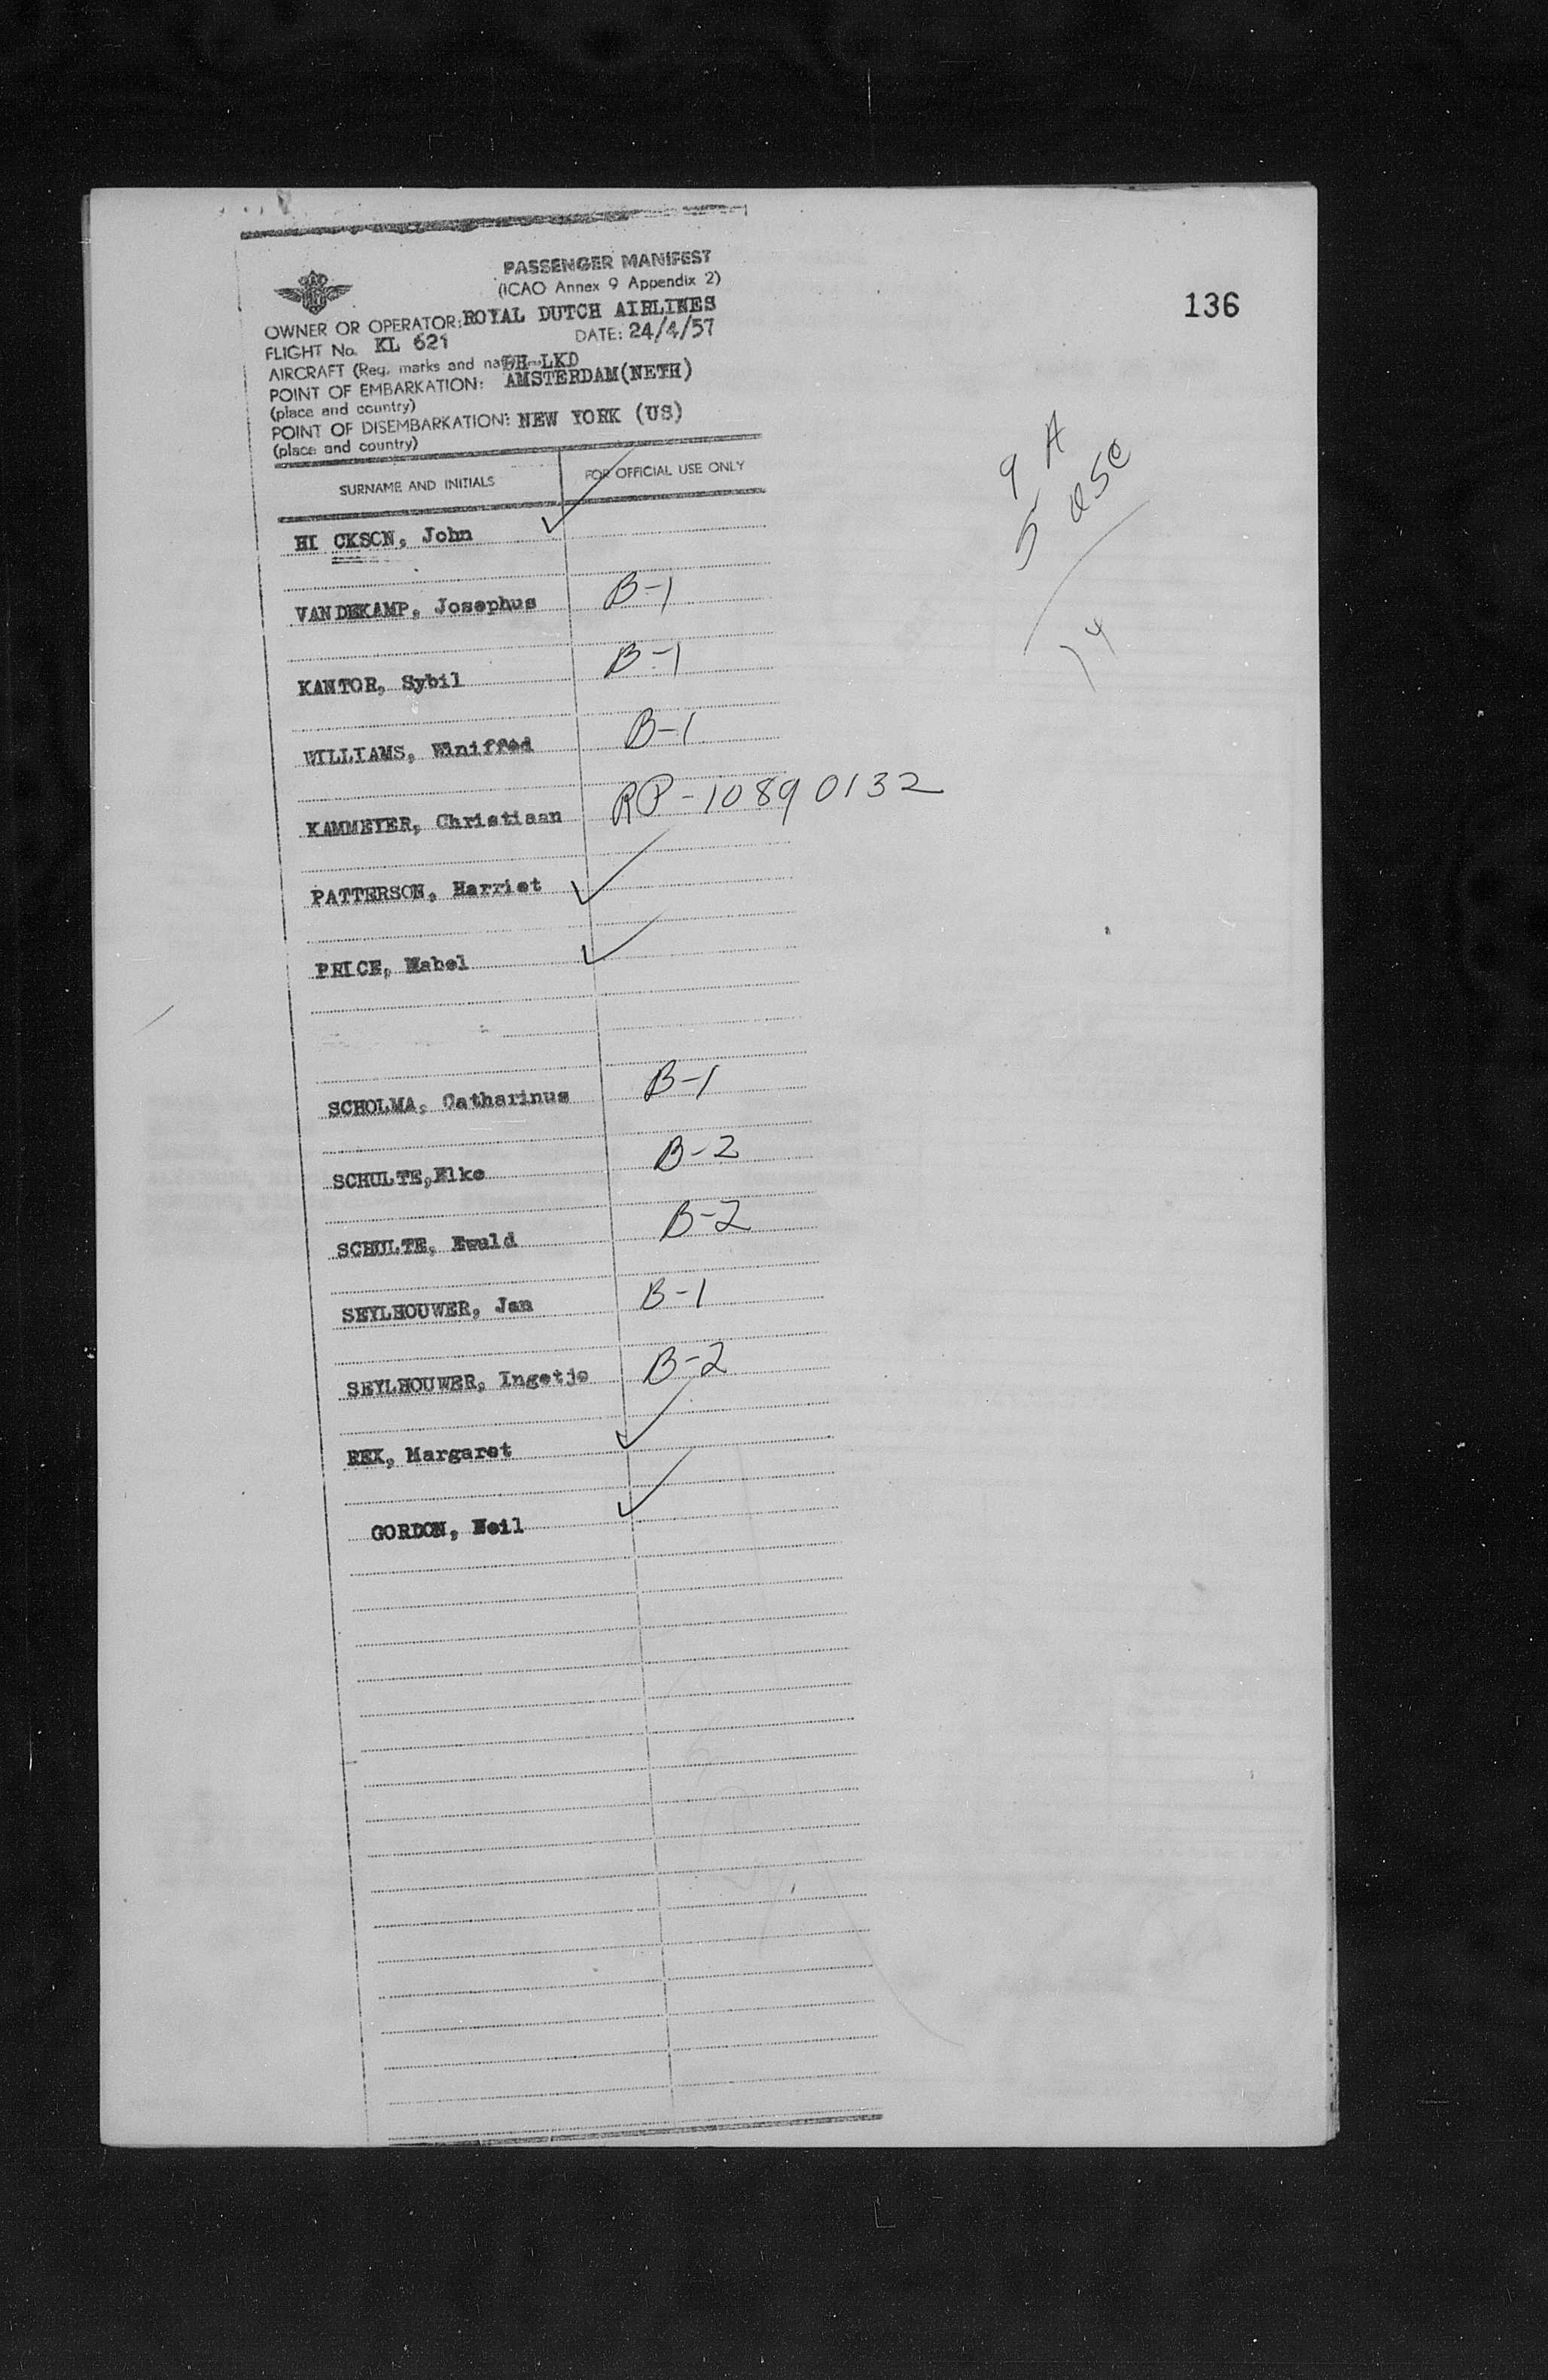 136
PASSENGER MANIFEST
(ICAO Annex 9 Appendix 2)
OWNER OR OPERATOR: ROYAL DUTCH AIRLINES
FLIGHT No. KL 621 DATE: 24/4/57
AIRCRAFT (Reg. marks and nat. PH-LKD
POINT OF EMBARKATION: AMSTERDAM(NETH)
(place and country)
POINT OF DISEMBARKATION: NEW YORK (US)
(place and country)
SURNAME AND INITIALS FOR OFFICIAL USE ONLY
HI CKSON, John ✓
VANDEKAMP, Josephus B-1
KANTOR, Sybil B-1
WILLIAMS, Winiffed B-1
KAMMEYER, Christiaan RP-10890132
PATTERSON, Harriet ✓
PRICE, Mabel ✓
SCHOLMA, Catharinus B-1
SCHULTE, Elke B-2
SCHULTE, Ewald B-2
SEYLHOUWER, Jan B-1
SEYLHOUWER, Ingetje B-2
REX, Margaret ✓
GORDON, Neil ✓
9 A
5 USC
14